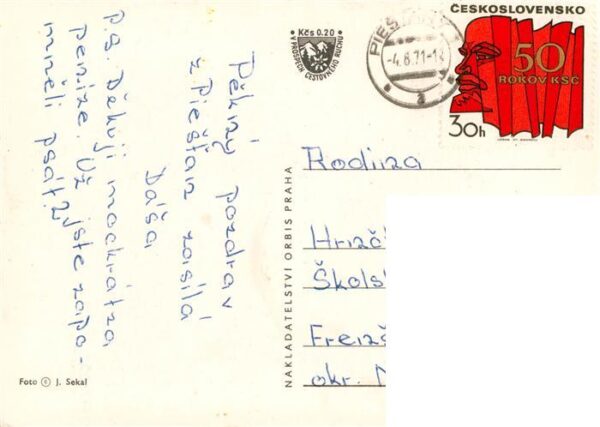 Pěkný pozdrav
z Piešťan zasílá
Dáša
p.s. Děkuji mockrát za
peníze. Už jste zapo-
mněli psát?
Foto © J. Sekal
NAKLADATELSTVÍ ORBIS PRAHA
Kčs 0.20
V PROSPĚCH CESTOVNÉHO RUCHU
PIEŠŤANY
-4.8.71-1
a
ČESKOSLOVENSKO
50
ROKOV KSČ
30h
Rodina
Školsk
okr.